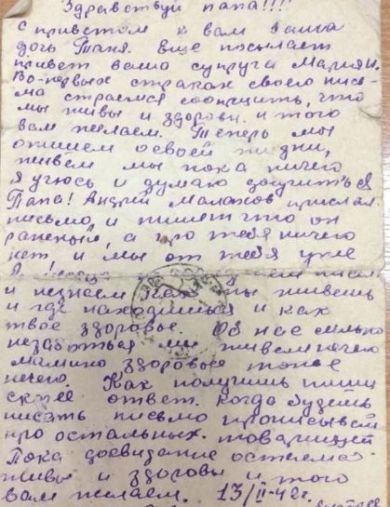 Здравствуй папа!!!!
с приветом к вам ваша
дочь Таня. Еще посылает
привет ваша супруга Мария.
Во-первых строках своего пись-
ма стараемся сообщить, что
мы живы и здоровы. и того
вам желаем. Теперь мы
опишем о своей жизни,
живем мы пока ничего
я учусь и думаю доучиться
Папа! Андрей прислал
письмо, и пишет что он
раненый, а про тебя ничего
нет и мы от тебя уже
писем
и незнаем как ты живешь
и где находишься и как
твое здоровье. Об нас сильно
незаботься мы живем ничего
мамино здоровье тоже
ничего. Как получишь пиши
скорее ответ. Когда будешь
писать письмо прописывай
про остальных товарищей
Пока досвидание остаемся
живы и здоровы и того
вам желаем. 13/II-42г.